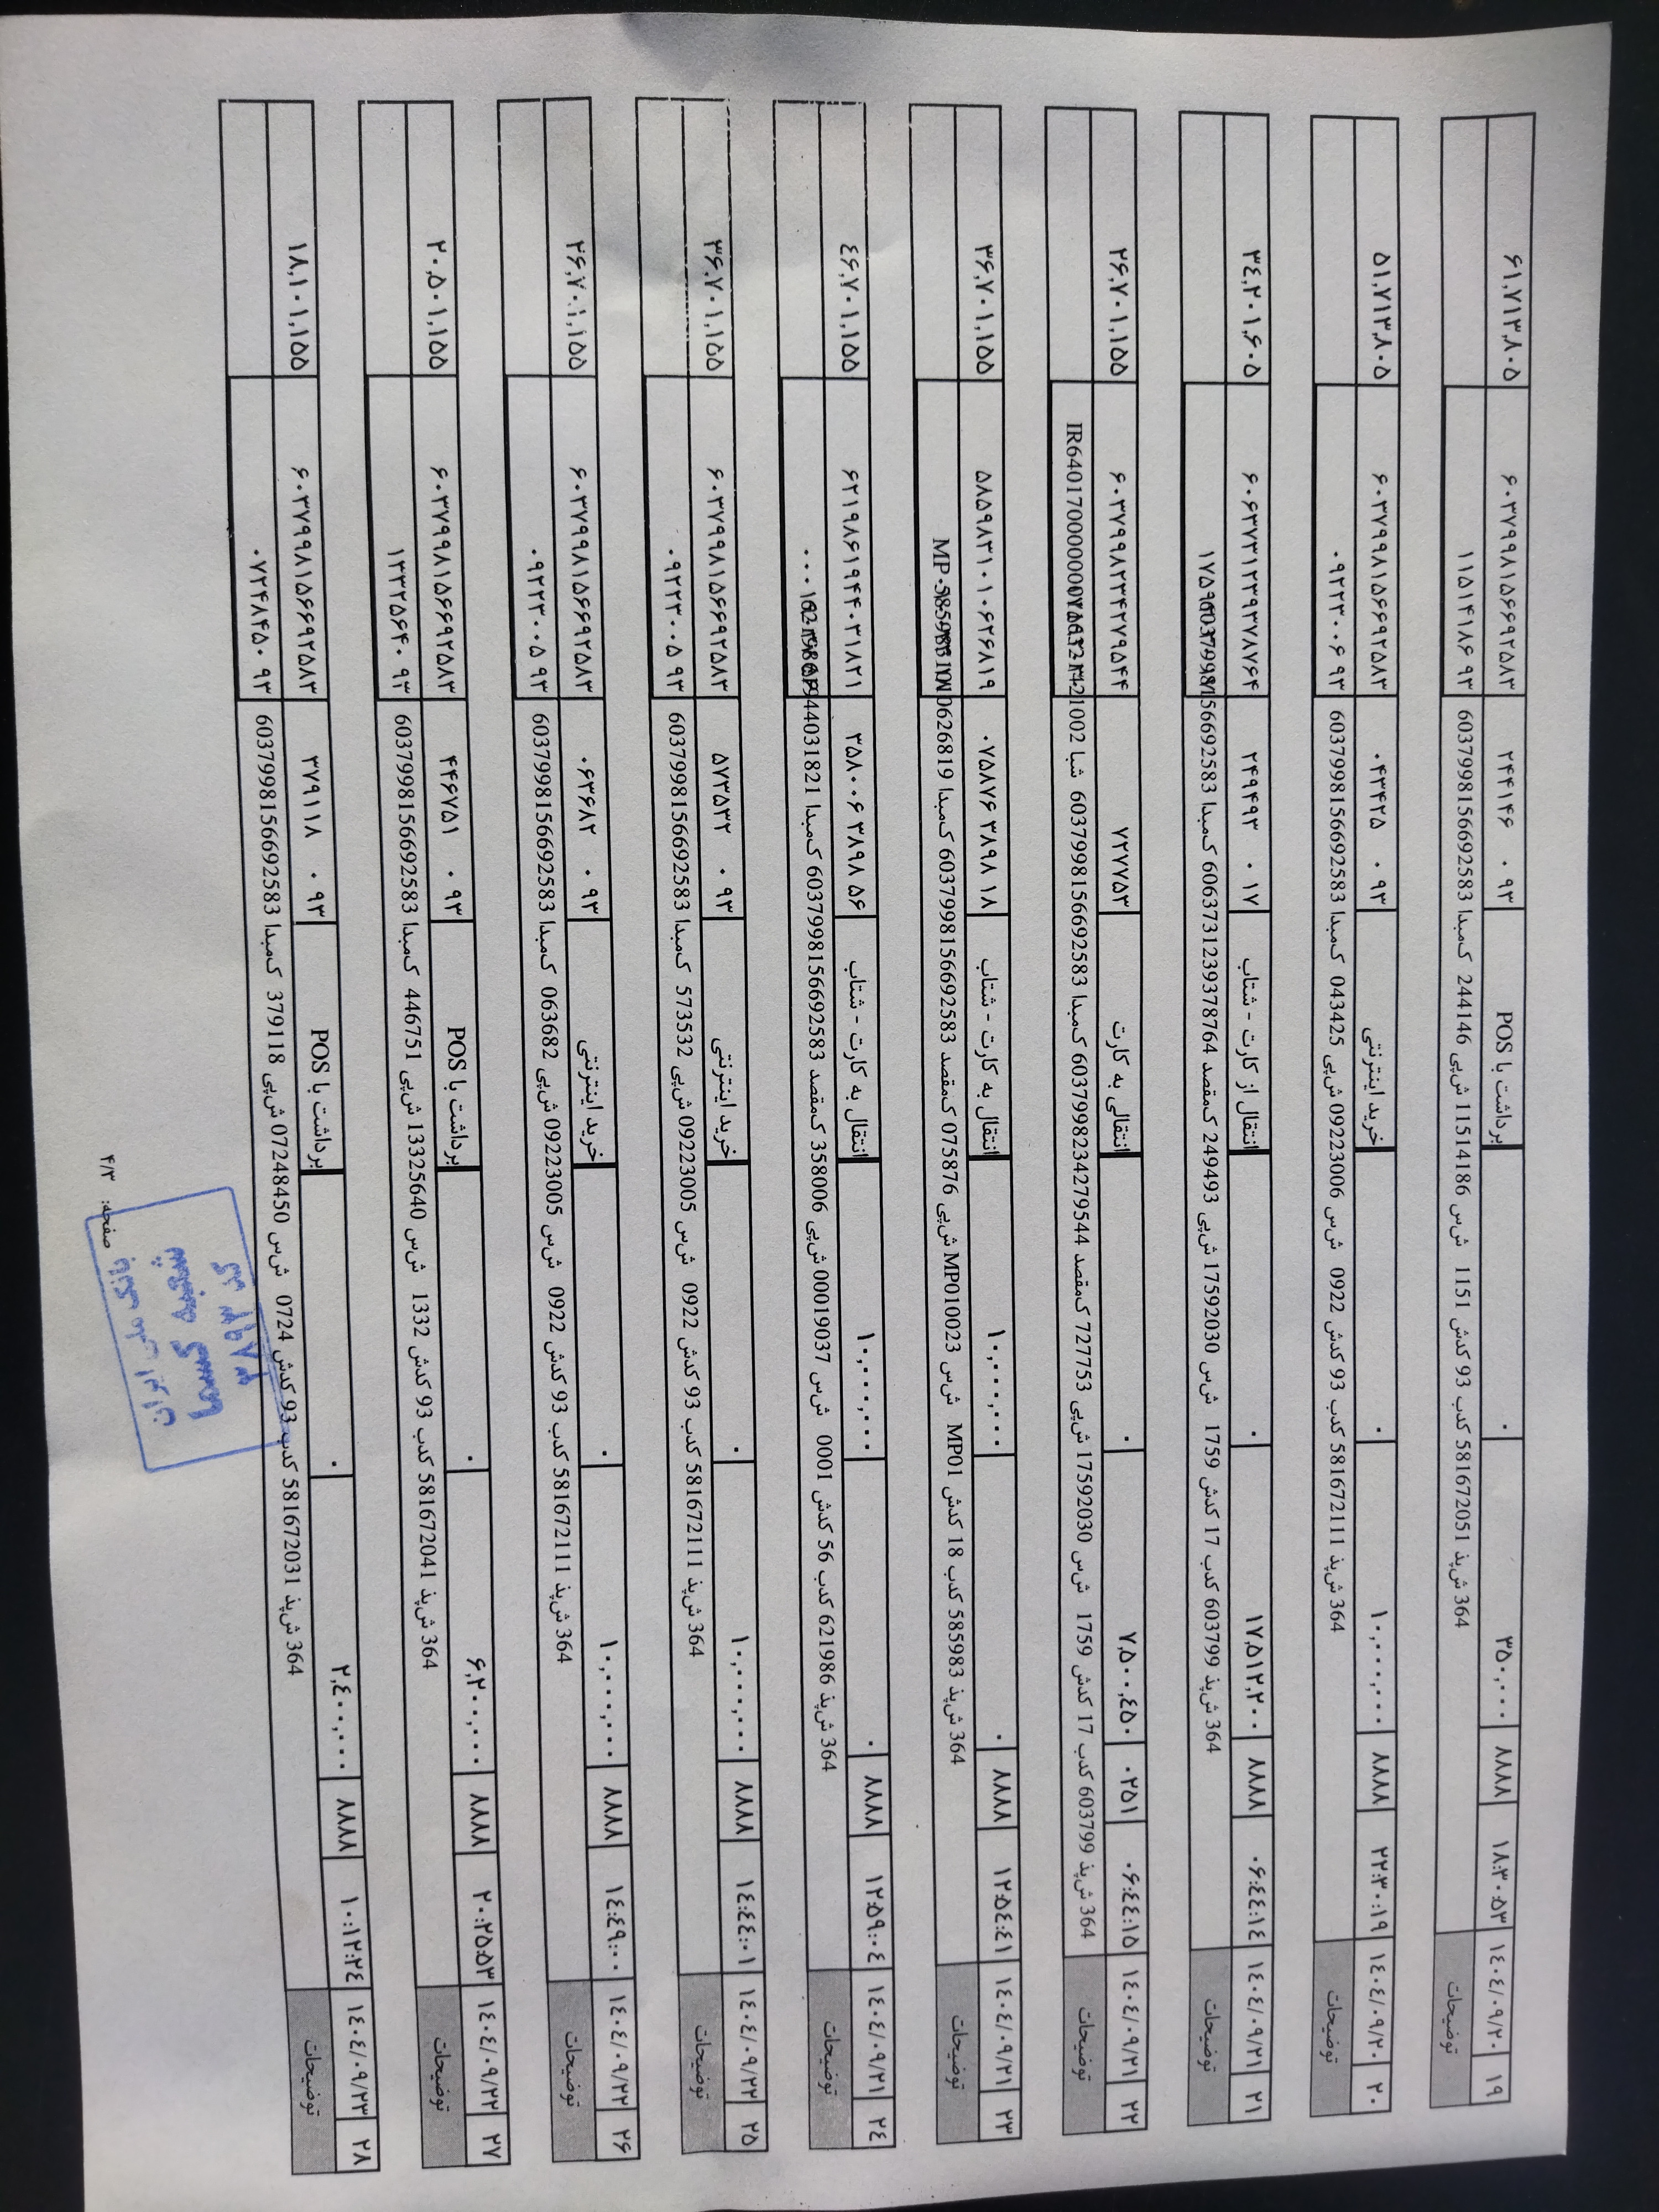 ۱۹ ۱٤۰٤/۰۹/۲۰ ۱۸:۳۰:۵۳ ۸۸۸۸ ۳۵۰,۰۰۰ ۰ برداشت با POS ۲۴۴۱۴۶ ۰ ۹۳ ۶۰۳۷۹۹۸۱۵۶۶۹۲۵۸۳ ۶۱,۷۱۳,۸۰۵
توضیحات 364 ش‌پذ 581672051 کدب 93 کدش 1151 ش‌س 11514186 ش‌پی 244146 ک‌مبدا 6037998156692583 ۱۱۵۱۴۱۸۶ ۹۳
۲۰ ۱٤۰٤/۰۹/۲۰ ۲۲:۳۰:۱۹ ۸۸۸۸ ۱۰,۰۰۰,۰۰۰ ۰ خرید اینترنتی ۰۴۳۴۲۵ ۰ ۹۳ ۶۰۳۷۹۹۸۱۵۶۶۹۲۵۸۳ ۵۱,۷۱۳,۸۰۵
توضیحات 364 ش‌پذ 581672111 کدب 93 کدش 0922 ش‌س 09223006 ش‌پی 043425 ک‌مبدا 6037998156692583 ۰۹۲۲۳۰۰۶ ۹۳
۲۱ ۱٤۰٤/۰۹/۲۱ ۰۶:٤٤:۱٤ ۸۸۸۸ ۱۷,۵۱۲,۲۰۰ ۰ انتقال از کارت - شتاب ۲۴۹۴۹۳ ۰ ۱۷ ۶۰۶۳۷۳۱۲۳۹۳۷۸۷۶۴ ۳٤,۲۰۱,۶۰۵
توضیحات 364 ش‌پذ 603799 کدب 17 کدش 1759 ش‌س 17592030 ش‌پی 249493 ک‌مقصد 6063731239378764 ک‌مبدا 6037998156692583
۲۲ ۱٤۰٤/۰۹/۲۱ ۰۶:٤٤:۱۵ ۰۲۵۱ ۷,۵۰۰,٤۵۰ ۰ انتقالی به کارت ۷۲۷۷۵۳ ۶۰۳۷۹۹۸۲۳۴۲۷۹۵۴۴ ۲۶,۷۰۱,۱۵۵
توضیحات 364 ش‌پذ 603799 کدب 17 کدش 1759 ش‌س 17592030 ش‌پی 727753 ک‌مقصد 6037998234279544 ک‌مبدا 6037998156692583 شبا
۲۳ ۱٤۰٤/۰۹/۲۱ ۱۲:۵٤:٤۱ ۸۸۸۸ ۰ ۱۰,۰۰۰,۰۰۰ انتقال به کارت - شتاب ۰۷۵۸۷۶ ۳۸۹۸ ۱۸ ۵۸۵۹۸۳۱۰۱۰۶۲۶۸۱۹ ۳۶,۷۰۱,۱۵۵
توضیحات 364 ش‌پذ 585983 کدب 18 کدش MP01 ش‌س MP010023 ش‌پی 075876 ک‌مقصد 6037998156692583 ک‌مبدا
۲٤ ۱٤۰٤/۰۹/۲۱ ۱۲:۵۹:۰٤ ۸۸۸۸ ۰ ۱۰,۰۰۰,۰۰۰ انتقال به کارت - شتاب ۳۵۸۰۰۶ ۳۸۹۸ ۵۶ ۶۲۱۹۸۶۱۹۴۴۰۳۱۸۲۱ ٤۶,۷۰۱,۱۵۵
توضیحات 364 ش‌پذ 621986 کدب 56 کدش 0001 ش‌س 00019037 ش‌پی 358006 ک‌مقصد 6037998156692583 ک‌مبدا
۲۵ ۱٤۰٤/۰۹/۲۲ ۱٤:٤٤:۰۱ ۸۸۸۸ ۱۰,۰۰۰,۰۰۰ ۰ خرید اینترنتی ۵۷۳۵۳۲ ۰ ۹۳ ۶۰۳۷۹۹۸۱۵۶۶۹۲۵۸۳ ۳۶,۷۰۱,۱۵۵
توضیحات 364 ش‌پذ 581672111 کدب 93 کدش 0922 ش‌س 09223005 ش‌پی 573532 ک‌مبدا 6037998156692583 ۰۹۲۲۳۰۰۵ ۹۳
۲۶ ۱٤۰٤/۰۹/۲۲ ۱٤:٤۹:۰۰ ۸۸۸۸ ۱۰,۰۰۰,۰۰۰ ۰ خرید اینترنتی ۰۶۳۶۸۲ ۰ ۹۳ ۶۰۳۷۹۹۸۱۵۶۶۹۲۵۸۳ ۲۶,۷۰۱,۱۵۵
توضیحات 364 ش‌پذ 581672111 کدب 93 کدش 0922 ش‌س 09223005 ش‌پی 063682 ک‌مبدا 6037998156692583 ۰۹۲۲۳۰۰۵ ۹۳
۲۷ ۱٤۰٤/۰۹/۲۲ ۲۰:۲۵:۵۳ ۸۸۸۸ ۶,۲۰۰,۰۰۰ ۰ برداشت با POS ۴۴۶۷۵۱ ۰ ۹۳ ۶۰۳۷۹۹۸۱۵۶۶۹۲۵۸۳ ۲۰,۵۰۱,۱۵۵
توضیحات 364 ش‌پذ 581672041 کدب 93 کدش 1332 ش‌س 13325640 ش‌پی 446751 ک‌مبدا 6037998156692583 ۱۳۳۲۵۶۴۰ ۹۳
۲۸ ۱٤۰٤/۰۹/۲۳ ۱۰:۱۲:۲٤ ۸۸۸۸ ۲,٤۰۰,۰۰۰ ۰ برداشت با POS ۳۷۹۱۱۸ ۰ ۹۳ ۶۰۳۷۹۹۸۱۵۶۶۹۲۵۸۳ ۱۸,۱۰۱,۱۵۵
توضیحات 364 ش‌پذ 581672031 کدب 93 کدش 0724 ش‌س 07248450 ش‌پی 379118 ک‌مبدا 6037998156692583 ۰۷۲۴۸۴۵۰ ۹۳
صفحه: ۴/۳